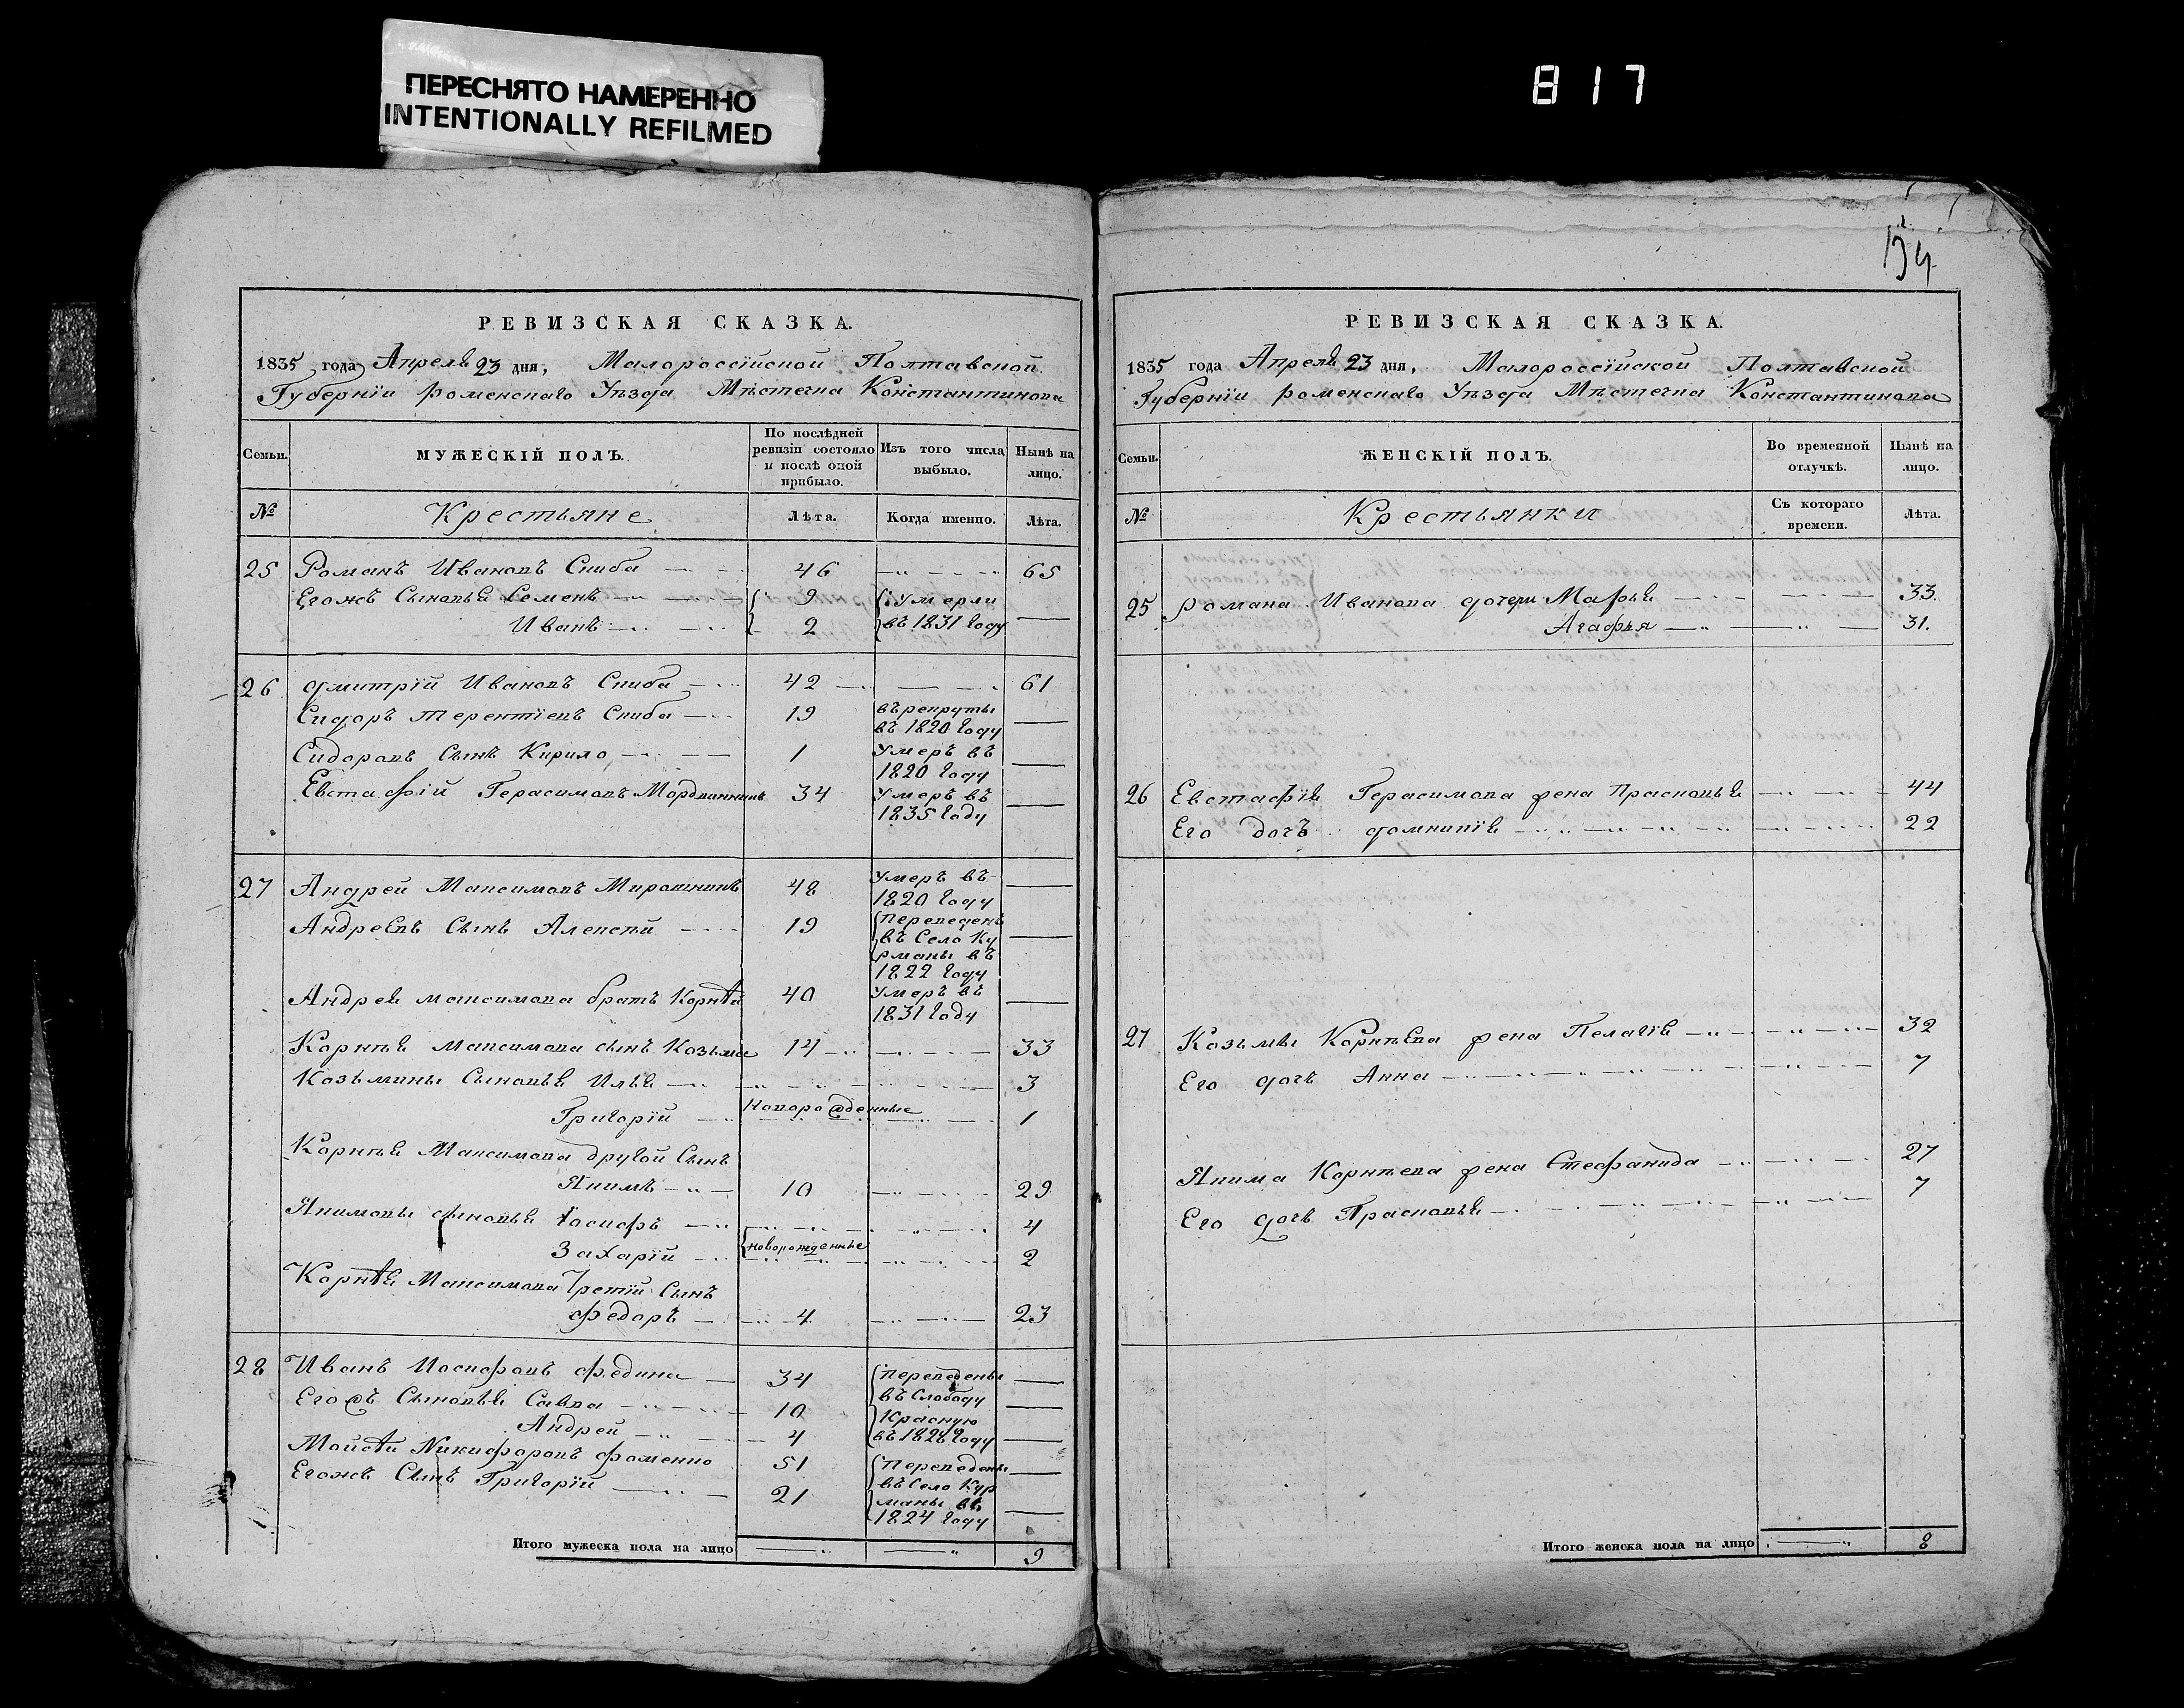 ПЕРЕСНЯТО НАМЕРЕННО
INTENTIONALLY REFILMED
817
РЕВИЗСКАЯ СКАЗКА.
1835 года Апреля 23 дня, Малороссійской Полтавской
Губерніи роменскаго Уѣзда Мѣстечка Константинова
Семьи.
МУЖЕСКІЙ ПОЛЪ.
По послѣдней
ревизіи состояло
и послѣ оной
прибыло.
Изъ того числа
выбыло.
Нынѣ на
лицо.
№
Крестьяне
Лѣта.
Когда именно.
Лѣта.
25 Романъ Ивановъ Скиба 46 65
Егожъ Сыновья Семенъ 9 Умерли
Иванъ 2 въ 1831 году
26 дмитрій Ивановъ Скиба 42 61
Сидоръ терентіевъ Скиба 19 въ рекруты
въ 1820 году
Сидоровъ Сынъ Кирило 1 Умеръ въ
1820 году
Евстафій Герасимовъ 34 Умеръ въ
1835 году
27 Андрей Максимовъ Мирошникъ 48 Умеръ въ
1820 году
Андреевъ Сынъ Алексѣй 19 Переведенъ
въ Село Ку
рманы въ
1822 году
Андрея максимова братъ Корнѣй 40 Умеръ въ
1831 году
Корнѣя максимова сынъ Козьма 14 33
Козьмины Сыновья Илья 3
Григорій новорожденные 1
Корнѣя Максимова другой Сынъ
Якимъ 10 29
Якимовы сыновья Іосифъ 4
Захарій новорожденные 2
Корнѣя Максимова Третій Сынъ
Федоръ 4 23
28 Иванъ Иосифовъ Федина 34 Переведены
Егожъ Сыновья Савва 10 въ Слободу
Красную
Андрей 4 въ 1828 году
Мойсѣй Никифоровъ фоменко 51 Переведены
Егожъ Сынъ Григорій 21 въ Село Кур
маны въ
1824 году
Итого мужеска пола на лицо 9
134
РЕВИЗСКАЯ СКАЗКА.
1835 года Апреля 23 дня, Малороссійской Полтавской
Губерніи роменскаго Уѣзда Мѣстечка Константинова
Семьи.
ЖЕНСКІЙ ПОЛЪ.
Во временной
отлучкѣ.
Нынѣ на
лицо.
№
Крестьянки
Съ котораго
времени.
Лѣта.
25 романа Иванова дочери Марья 33.
Агафья 31.
26 Евстафія Герасимова жена Прасковья 44
Его дочъ домникія 22
27 Козьмы Корнѣева жена Пелагія 32
Его дочъ Анна 7
Якима Корнѣева жена Стефанида 27
Его дочь Прасковья 7
Итого женска пола на лицо 8